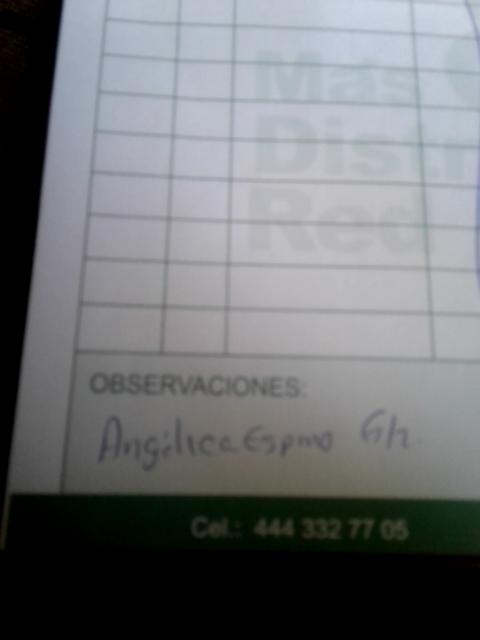 Más
Distr
Red
OBSERVACIONES:
Angélica Espino G/z.
Cel.: 444 332 77 05